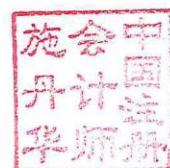 中国注册
会计师
施丹华